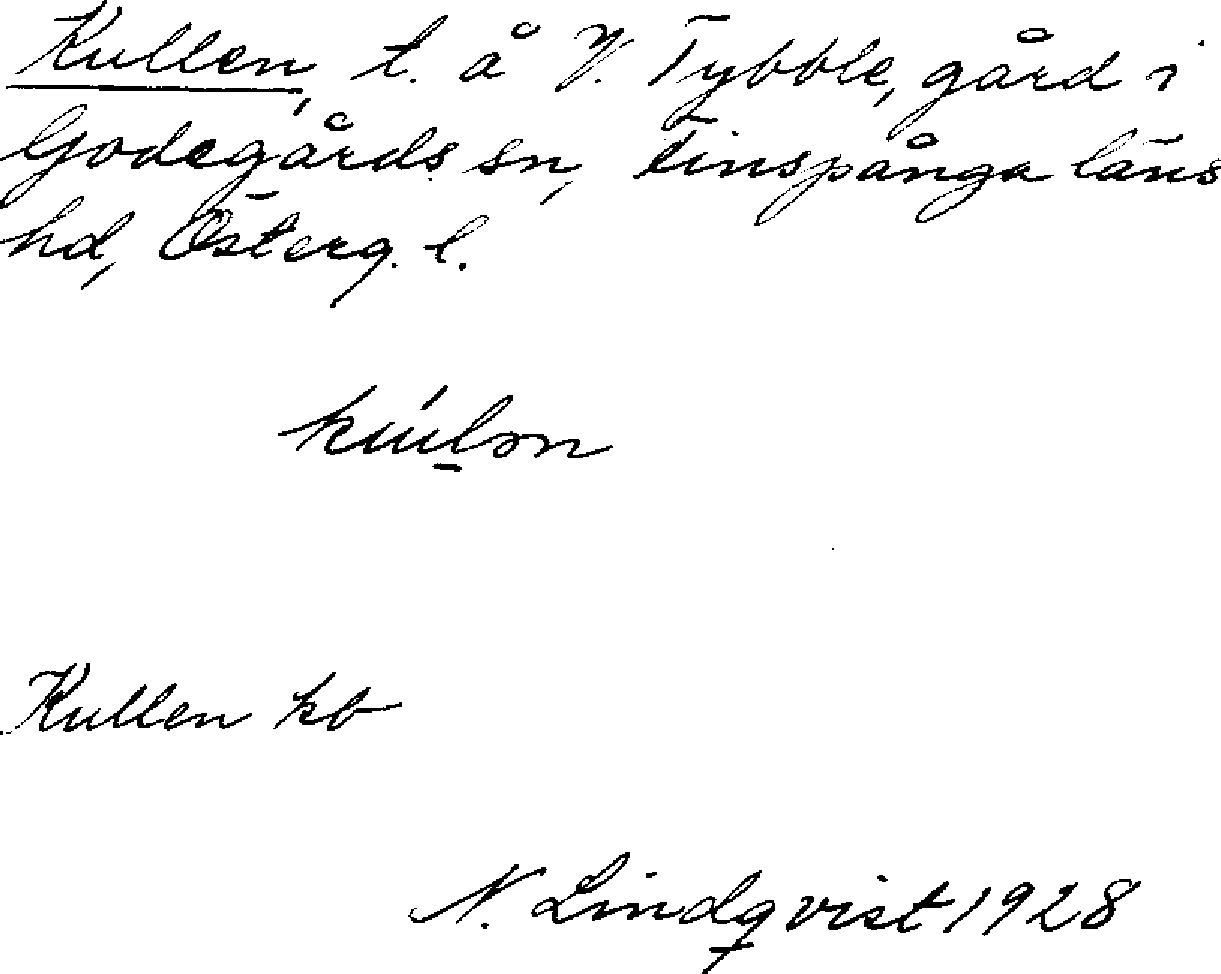 Kullen, t. å V. Tybble, gård i
Godegårds sn, Finspånga läns
hd, Österg. l.
Kullen kb
N. Lindqvist 1928